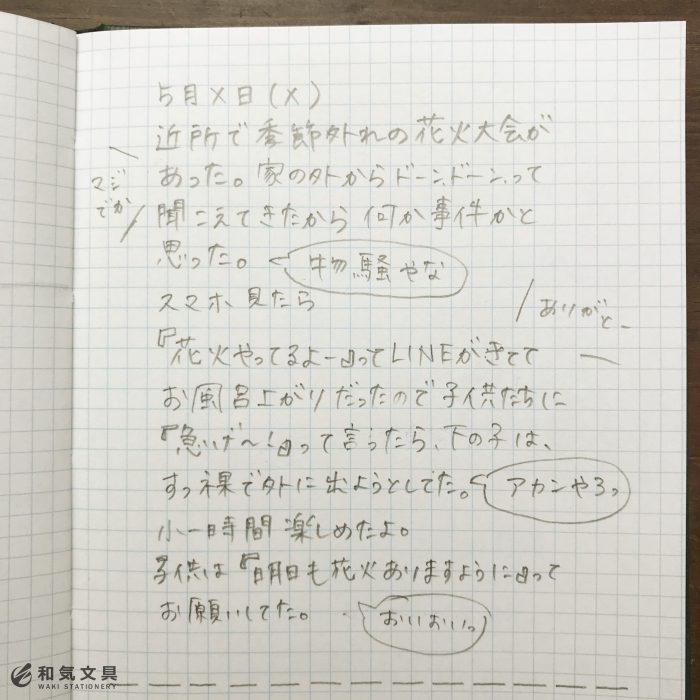 5月X日(X)
近所で季節外れの花火大会が
あった。家の外からドーン、ドーン、って
マジ
でか
聞こえてきたから 何か事件かと
思った。
物騒やな
スマホ見たら
ありがと-
『花火やってるよー』ってLINEがきてて
お風呂上がりだったので子供たちに
『急いげ〜!』って言うたら、下の子は、
すっ裸で外に出ようとしてた。
アカンやろっ
小一時間楽しめたよ。
子供は『明日も花火ありますように』って
お願いしてた。
おいおいっ
和気文具
WAKI STATIONERY